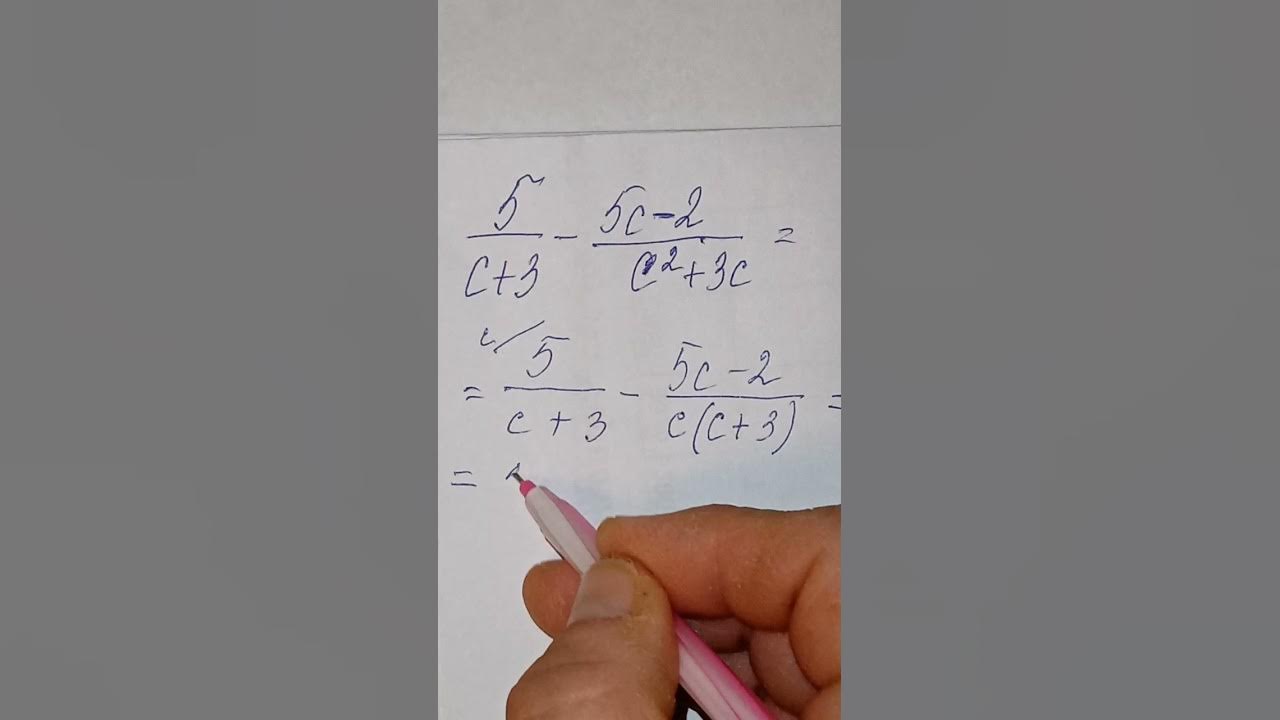 5/(c+3) - (5c-2)/(c²+3c) =
= c/ 5/(c+3) - (5c-2)/(c(c+3)) =
=